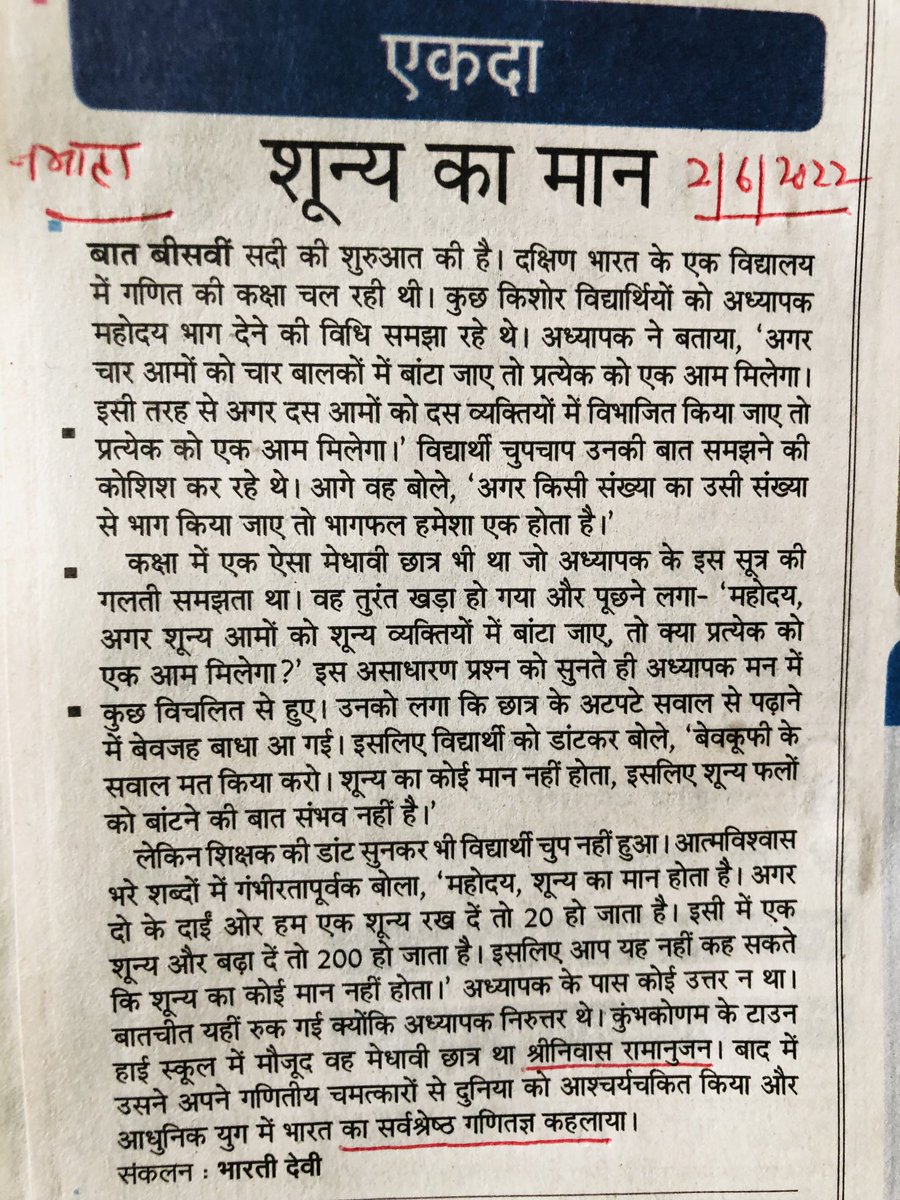 एकदा
शून्य का मान
2/6/2022
बात बीसवीं सदी की शुरुआत की है। दक्षिण भारत के एक विद्यालय
में गणित की कक्षा चल रही थी। कुछ किशोर विद्यार्थियों को अध्यापक
महोदय भाग देने की विधि समझा रहे थे। अध्यापक ने बताया, ‘अगर
चार आमों को चार बालकों में बांटा जाए तो प्रत्येक को एक आम मिलेगा।
इसी तरह से अगर दस आमों को दस व्यक्तियों में विभाजित किया जाए तो
प्रत्येक को एक आम मिलेगा।’ विद्यार्थी चुपचाप उनकी बात समझने की
कोशिश कर रहे थे। आगे वह बोले, ‘अगर किसी संख्या का उसी संख्या
से भाग किया जाए तो भागफल हमेशा एक होता है।’
कक्षा में एक ऐसा मेधावी छात्र भी था जो अध्यापक के इस सूत्र की
गलती समझता था। वह तुरंत खड़ा हो गया और पूछने लगा- ‘महोदय,
अगर शून्य आमों को शून्य व्यक्तियों में बांटा जाए, तो क्या प्रत्येक को
एक आम मिलेगा?’ इस असाधारण प्रश्न को सुनते ही अध्यापक मन में
कुछ विचलित से हुए। उनको लगा कि छात्र के अटपटे सवाल से पढ़ाने
में बेवजह बाधा आ गई। इसलिए विद्यार्थी को डांटकर बोले, ‘बेवकूफी के
सवाल मत किया करो। शून्य का कोई मान नहीं होता, इसलिए शून्य फलों
को बांटने की बात संभव नहीं है।’
लेकिन शिक्षक की डांट सुनकर भी विद्यार्थी चुप नहीं हुआ। आत्मविश्वास
भरे शब्दों में गंभीरतापूर्वक बोला, ‘महोदय, शून्य का मान होता है। अगर
दो के दाईं ओर हम एक शून्य रख दें तो 20 हो जाता है। इसी में एक
शून्य और बढ़ा दें तो 200 हो जाता है। इसलिए आप यह नहीं कह सकते
कि शून्य का कोई मान नहीं होता।’ अध्यापक के पास कोई उत्तर न था।
बातचीत यहीं रुक गई क्योंकि अध्यापक निरुत्तर थे। कुंभकोणम के टाउन
हाई स्कूल में मौजूद वह मेधावी छात्र था श्रीनिवास रामानुजन। बाद में
उसने अपने गणितीय चमत्कारों से दुनिया को आश्चर्यचकित किया और
आधुनिक युग में भारत का सर्वश्रेष्ठ गणितज्ञ कहलाया।
संकलन : भारती देवी